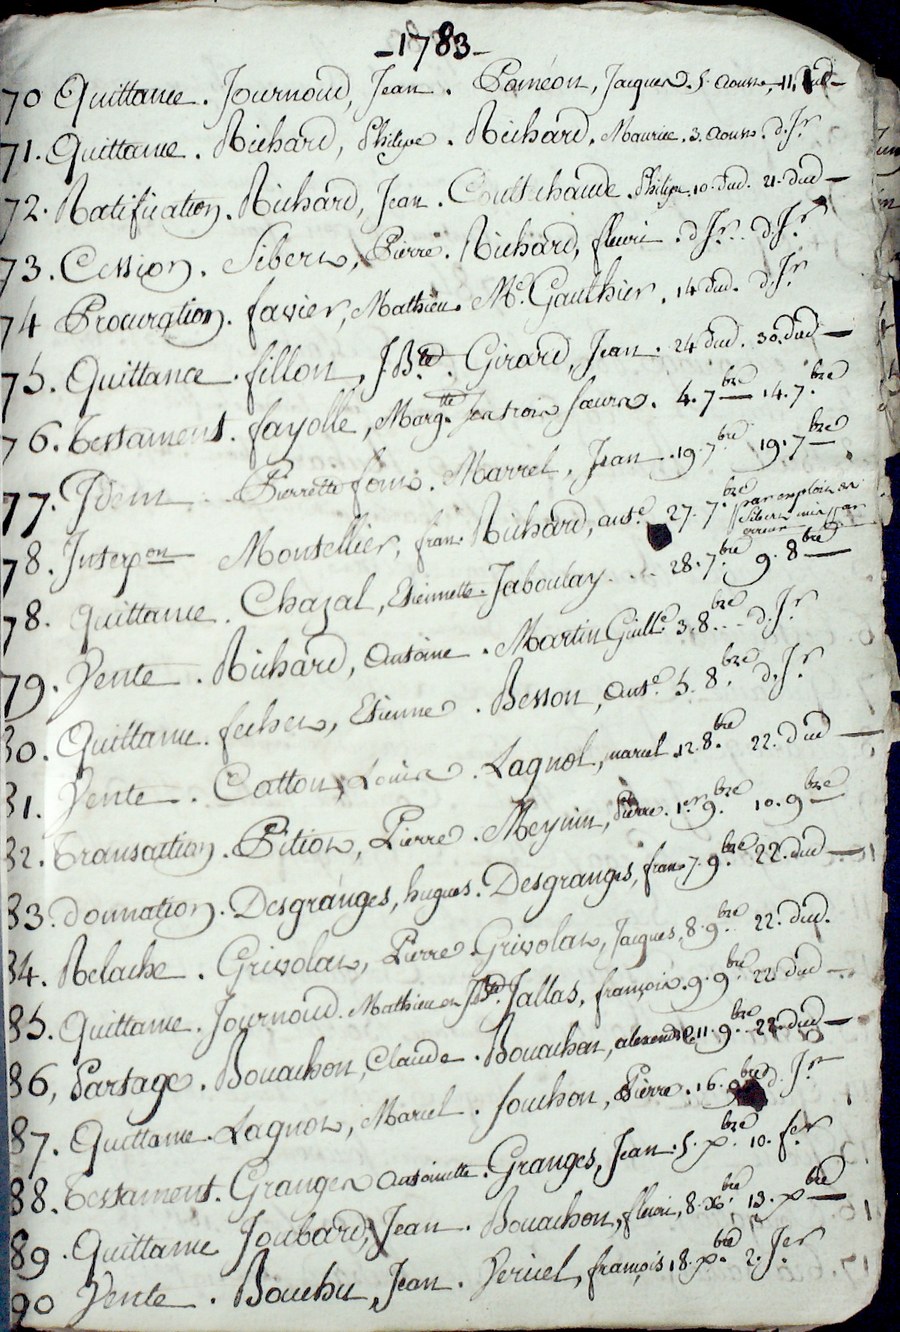 -1783-
70 Quittance. Journoud, Jean. Paméon, Jacques. 5. Aoust, 11. dud
71. Quittance. Richard, Philipe. Richard, Maurice. 3. Aoust. d. Jr
72. Ratification. Richard, Jean. Coultchaude. Philipe. 10. dud. 21. dud
73. Cession. Sibert, Pierre. Richard, fleuri. d. Jr. d. Jr
74 Procuration. favier, Mathieu. Me. Gauthier. 14 dud. d. Jr
75. Quittance. fillon, J. Bte. Girard, Jean. 24 dud. 30. dud
76. testament. fayolle, Margtte. soeurs. 4. 7bre 14. 7bre
77. Idem Pierrette Marrel, Jean. 19. 7bre 19. 7bre
78. Interpon Montellier, fran. Richard, Ante. 27. 7bre par exploit de
Sibert mis par
erreur
78. Quittance. Chazal, Etiennette. Jaboulay. 28. 7bre 9. 8bre
79. Vente. Richard, Antoine. Martin Guille. 3. 8bre. d. Jr
80. Quittance. fecher, Etienne. Besson, Ante. 5. 8bre. d. Jr
81. Vente. Catton, Louis. Lagnol, marcel. 12. 8bre 22. dud
82. transaction. Pition, Pierre. Meynin, Pierre. 1er 9bre. 10. 9bre
83. donnation. Desgranges, hugues. Desgranges, fran. 7. 9bre 22. dud
84. Relache. Grivolat, Pierre. Grivolat, Jacques, 8. 9bre 22. dud.
85. Quittance. Journoud. Mathieu et J. Bte. Jallas, françois. 9. 9bre 22. dud
86, Partage. Bouachon, Claude. Bouachon, 11. 9bre. 22. dud
87. Quittance. Lagnol, Marcel. fouchon, Pierre. 16. 9bre d. Jr
88. testament. Granger Antoinette. Granges, Jean. 5. xbre. 10. fer
89. Quittance Joubard, Jean. Bouachon, fleuri, 8. xbre. 13. xbre
90 Vente. Bouchu, Jean. Vericel, françois 18. xbre 2. Jer